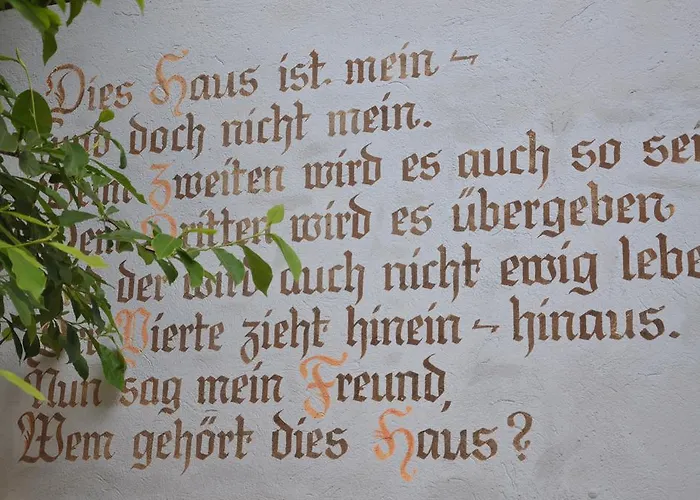 Dies Haus ist mein -
und doch nicht mein.
Dem Zweiten wird es auch so sei
Dem Dritten wird es übergeben
der wird auch nicht ewig lebe
Vierte zieht hinein - hinaus.
Nun sag mein Freund,
Wem gehört dies Haus?